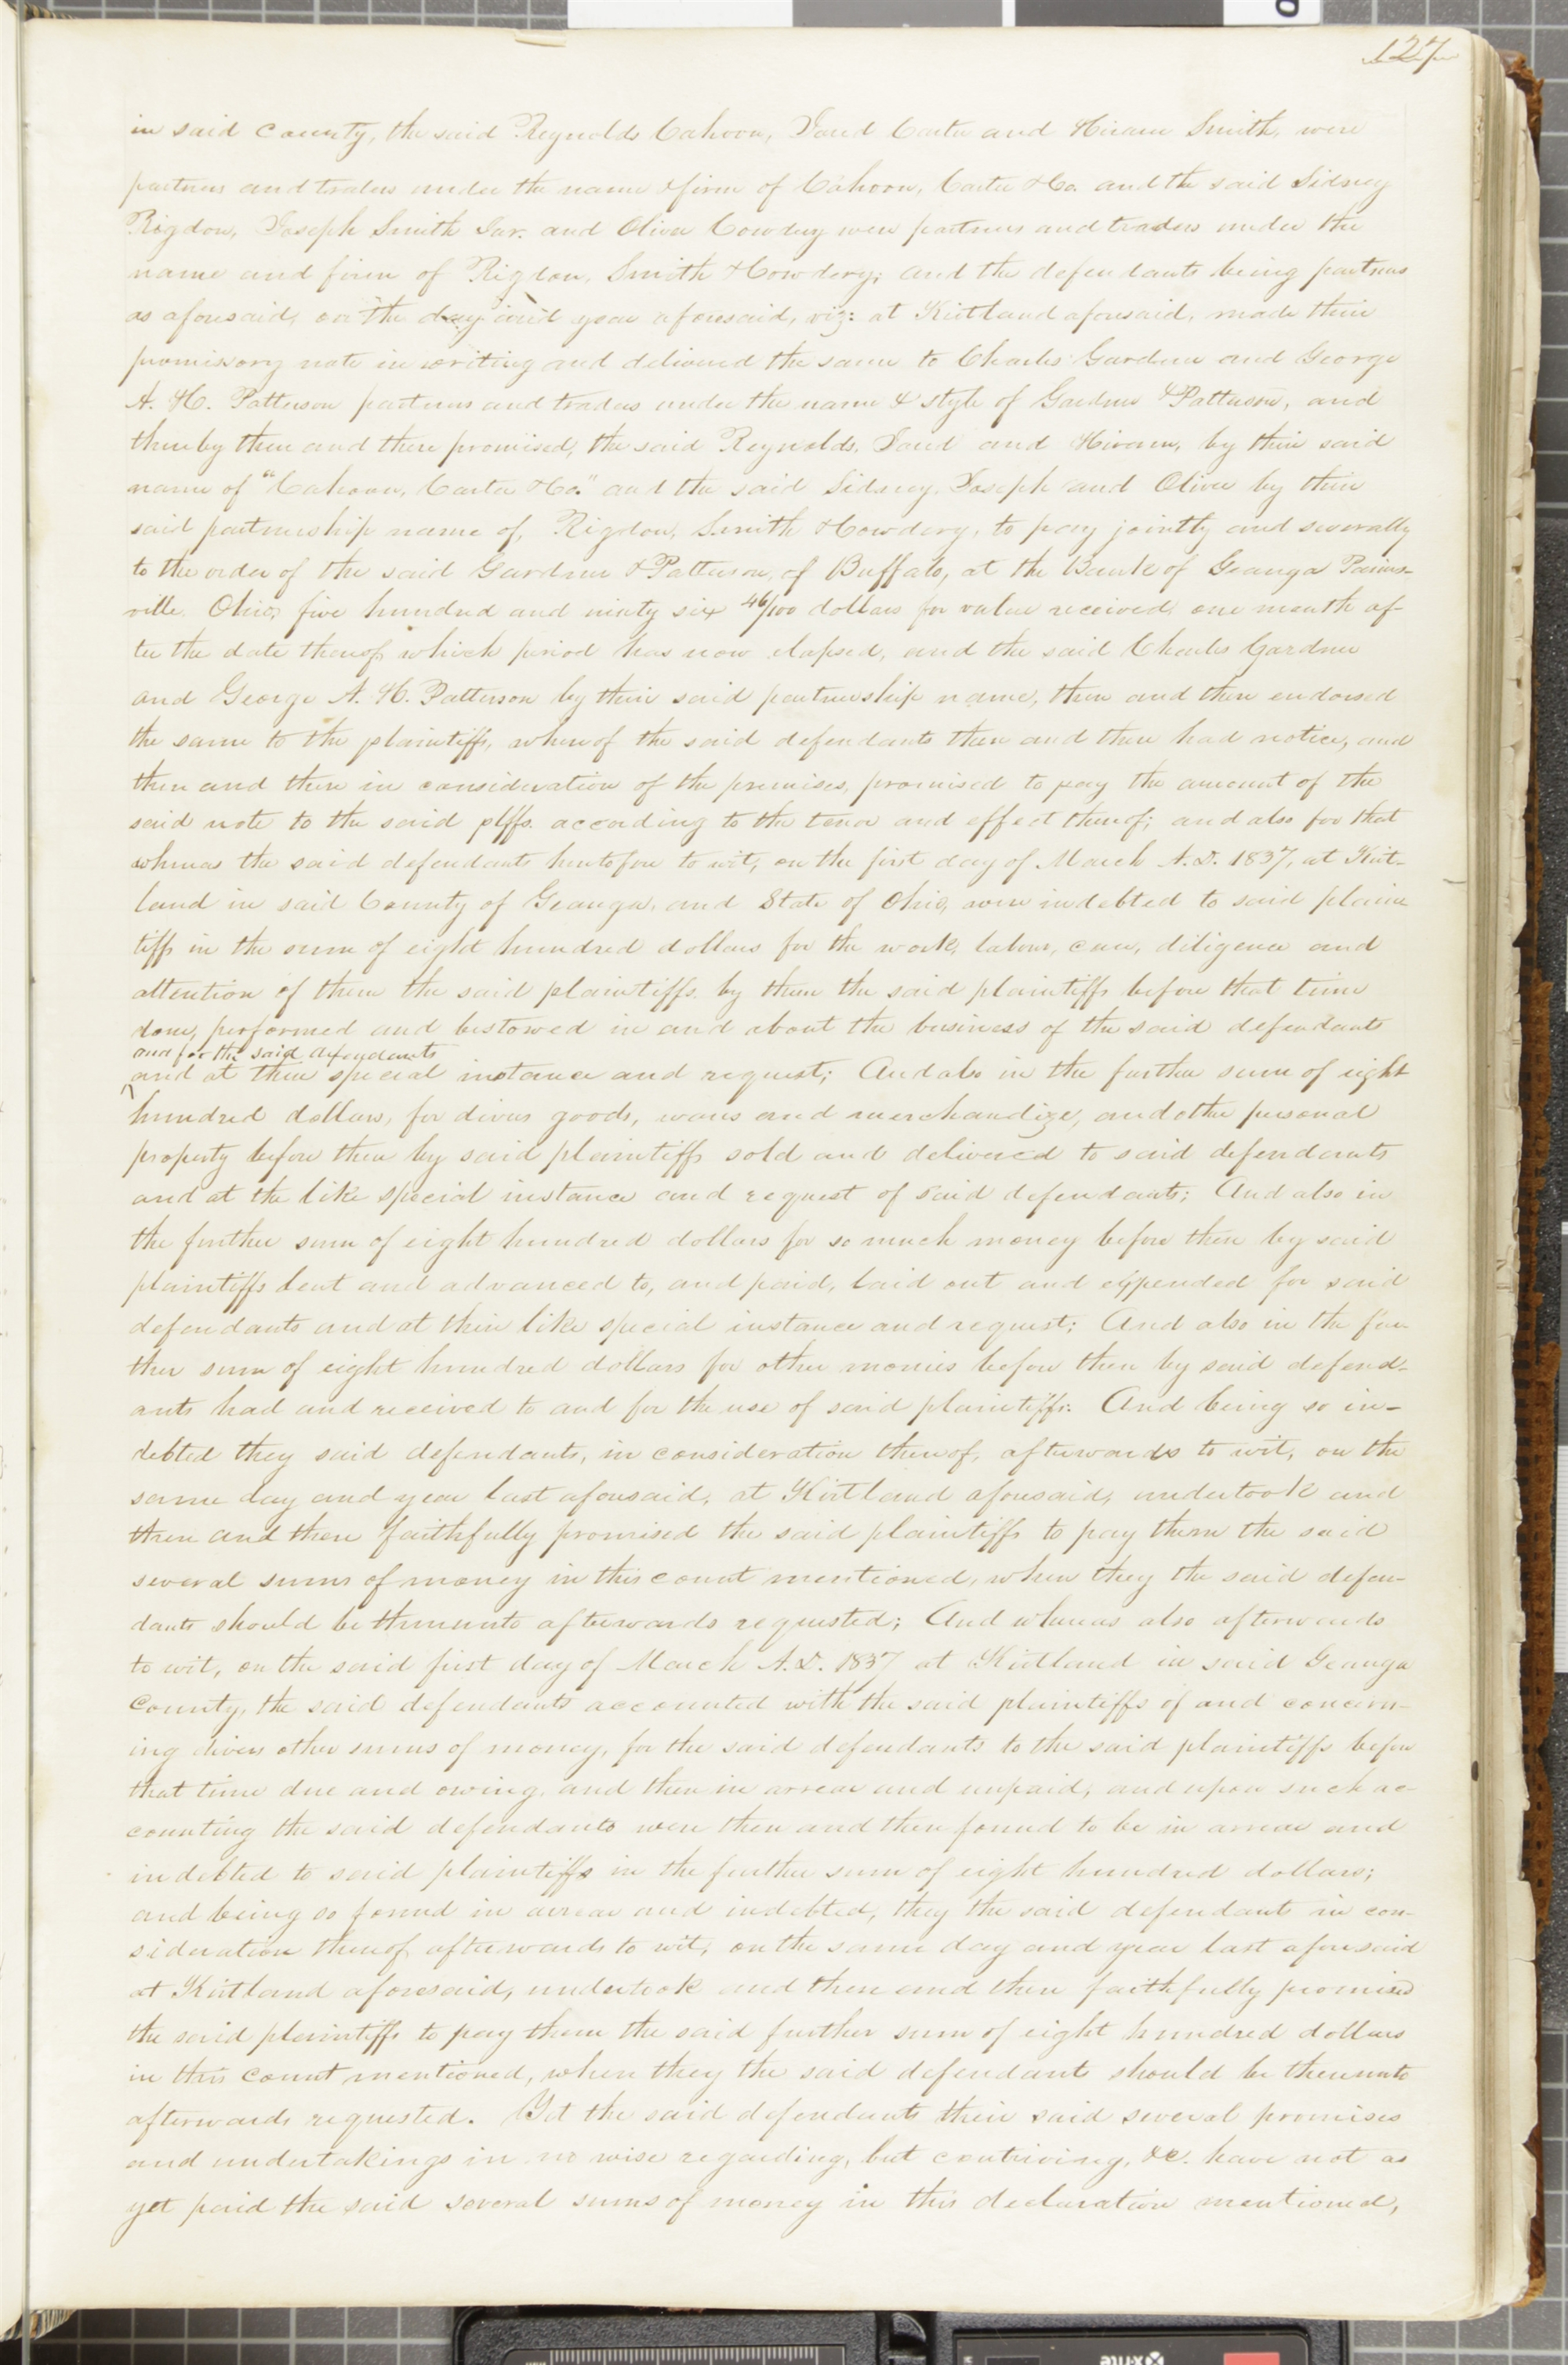 127
in said County, the said Reynolds Cahoon, Jared Carter and Hiram Smith, were
partners and traders under the name & firm of Cahoon, Carter & Co. and the said Sidney
Rigdon, Joseph Smith Jur. and Oliver Cowdery were partners and traders under the
name and firm of Rigdon, Smith & Cowdery; and the defendants being partners
as aforesaid, on the day and year aforesaid, viz: at Kirtland aforesaid, made their
promissory note in writing and delivered the same to Charles Gardner and George
A. H. Patterson partners and traders under the name & style of Gardner & Patterson, and
thereby then and there promised, the said Reynolds, Jared and Hiram, by their said
name of "Cahoon, Carter & Co." and the said Sidney, Joseph and Oliver by their
said partnership name of, Rigdon, Smith & Cowdery, to pay jointly and severally
to the order of the said Gardner & Patterson, of Buffalo, at the Bank of Geauga Paines-
ville Ohio, five hundred and ninty six 46/100 dollars for value received, one month af-
ter the date thereof, which period has now elapsed, and the said Charles Gardner
and George A. H. Patterson by their said partnership name, then and there endorsed
the same to the plaintiffs, whereof the said defendants then and there had notice, and
then and there in consideration of the premises, promised to pay the amount of the
said note to the said plffs. according to the tenor and effect thereof; and also for that
whereas the said defendants heretofore to wit, on the first day of March A.D. 1837, at Kirt-
land in said County of Geauga, and State of Ohio, were indebted to said plain
tiffs in the sum of eight hundred dollars for the work, labour, care, diligence and
attention of them the said plaintiffs, by them the said plaintiffs before that time
done, performed and bestowed in and about the business of the said defendants
and for the said defendants
and at their special instance and request; And also in the further sum of eight
hundred dollars, for divers goods, wares and merchandize, and other personal
property before then by said plaintiffs sold and delivered to said defendants
and at the like special instance and request of said defendants; And also in
the further sum of eight hundred dollars for so much money before then by said
plaintiffs lent and advanced to, and paid, laid out and expended for said
defendants and at their like special instance and request; And also in the fur
ther sum of eight hundred dollars for other monies before then by said defend-
ants had and received to and for the use of said plaintiffs: And being so in-
debted they said defendants, in consideration thereof, afterwards to wit, on the
same day and year last aforesaid, at Kirtland aforesaid, undertook and
then and there faithfully promised the said plaintiffs to pay them the said
several sums of money in this count mentioned, when they the said defen-
dants should be thereunto afterwards requested; And whereas also afterwards
to wit, on the said first day of March A.D. 1837 at Kirtland in said Geauga
County, the said defendants accounted with the said plaintiffs of and concern-
ing divers other sums of money, for the said defendants to the said plaintiffs before
that time due and owing, and then in arrear and unpaid, and upon such ac-
counting the said defendants were then and there found to be in arrear and
indebted to said plaintiffs in the further sum of eight hundred dollars;
and being so found in arrear and indebted, they the said defendants in con-
sideration thereof, afterwards to wit, on the same day and year last aforesaid
at Kirtland aforesaid, undertook and then and there faithfully promised
the said plaintiffs to pay them the said further sum of eight hundred dollars
in this count mentioned, when they the said defendants should be thereunto
afterwards requested. Yet the said defendants their said several promises
and undertakings in no wise regarding, but contriving, &c. have not as
yet paid the said several sums of money in this declaration mentioned,